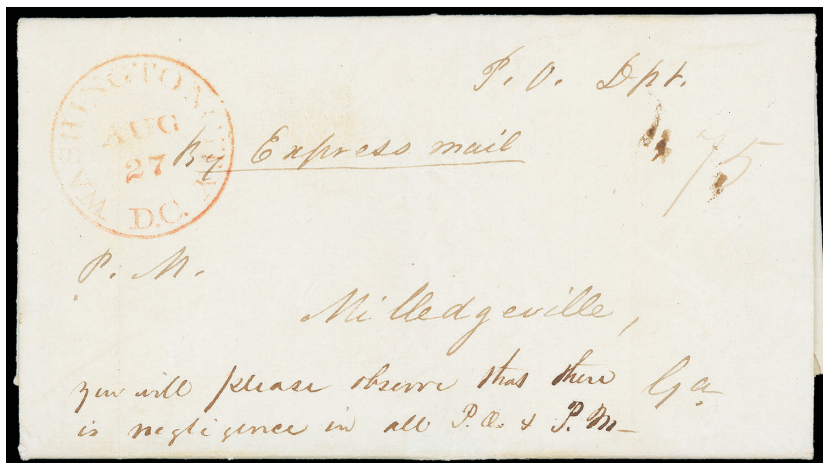 P. O. Dpt.
WASHINGTON CITY
AUG
27
D.C.
By Express mail
75
P. M.
Milledgeville,
Ga
you will please observe that there
is negligence in all P.O. & P.M